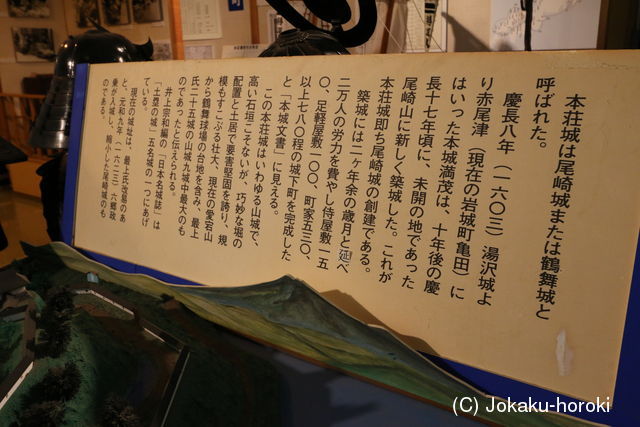 本荘城は尾崎城または鶴舞城と
呼ばれた。
慶長八年（一六〇三）湯沢城よ
り赤尾津（現在の岩城町亀田）に
はいった本城満茂は、十年後の慶
長十七年頃に、未開の地であった
尾崎山に新しく築城した。これが
本荘城即ち尾崎城の創建である。
築城には二ヶ年余の歳月と延べ
二万人の労力を費やし侍屋敷一五
〇、足軽屋敷一〇〇、町家五三〇、
以上七八〇程の城下町を完成した
と「本城文書」に見える。
この本荘城はいわゆる山城で、
高い石垣こそないが、巧妙な堀の
配置と土居で要害堅固を誇り、規
模もすこぶる壮大、現在の愛宕山
から鶴舞球場の台地を含み、最上
氏二十五城の山城九城中最大のも
のであったと伝えられる。
井上宗和編の「日本名城誌」は
「土塁の城」五名城の一つにあげ
ている。
現在の城址は、最上氏改易のあ
と、元和九年（一六二三）六郷政
乗が入城し、縮小した尾崎城のも
のである。
(C) Jokaku-horoki